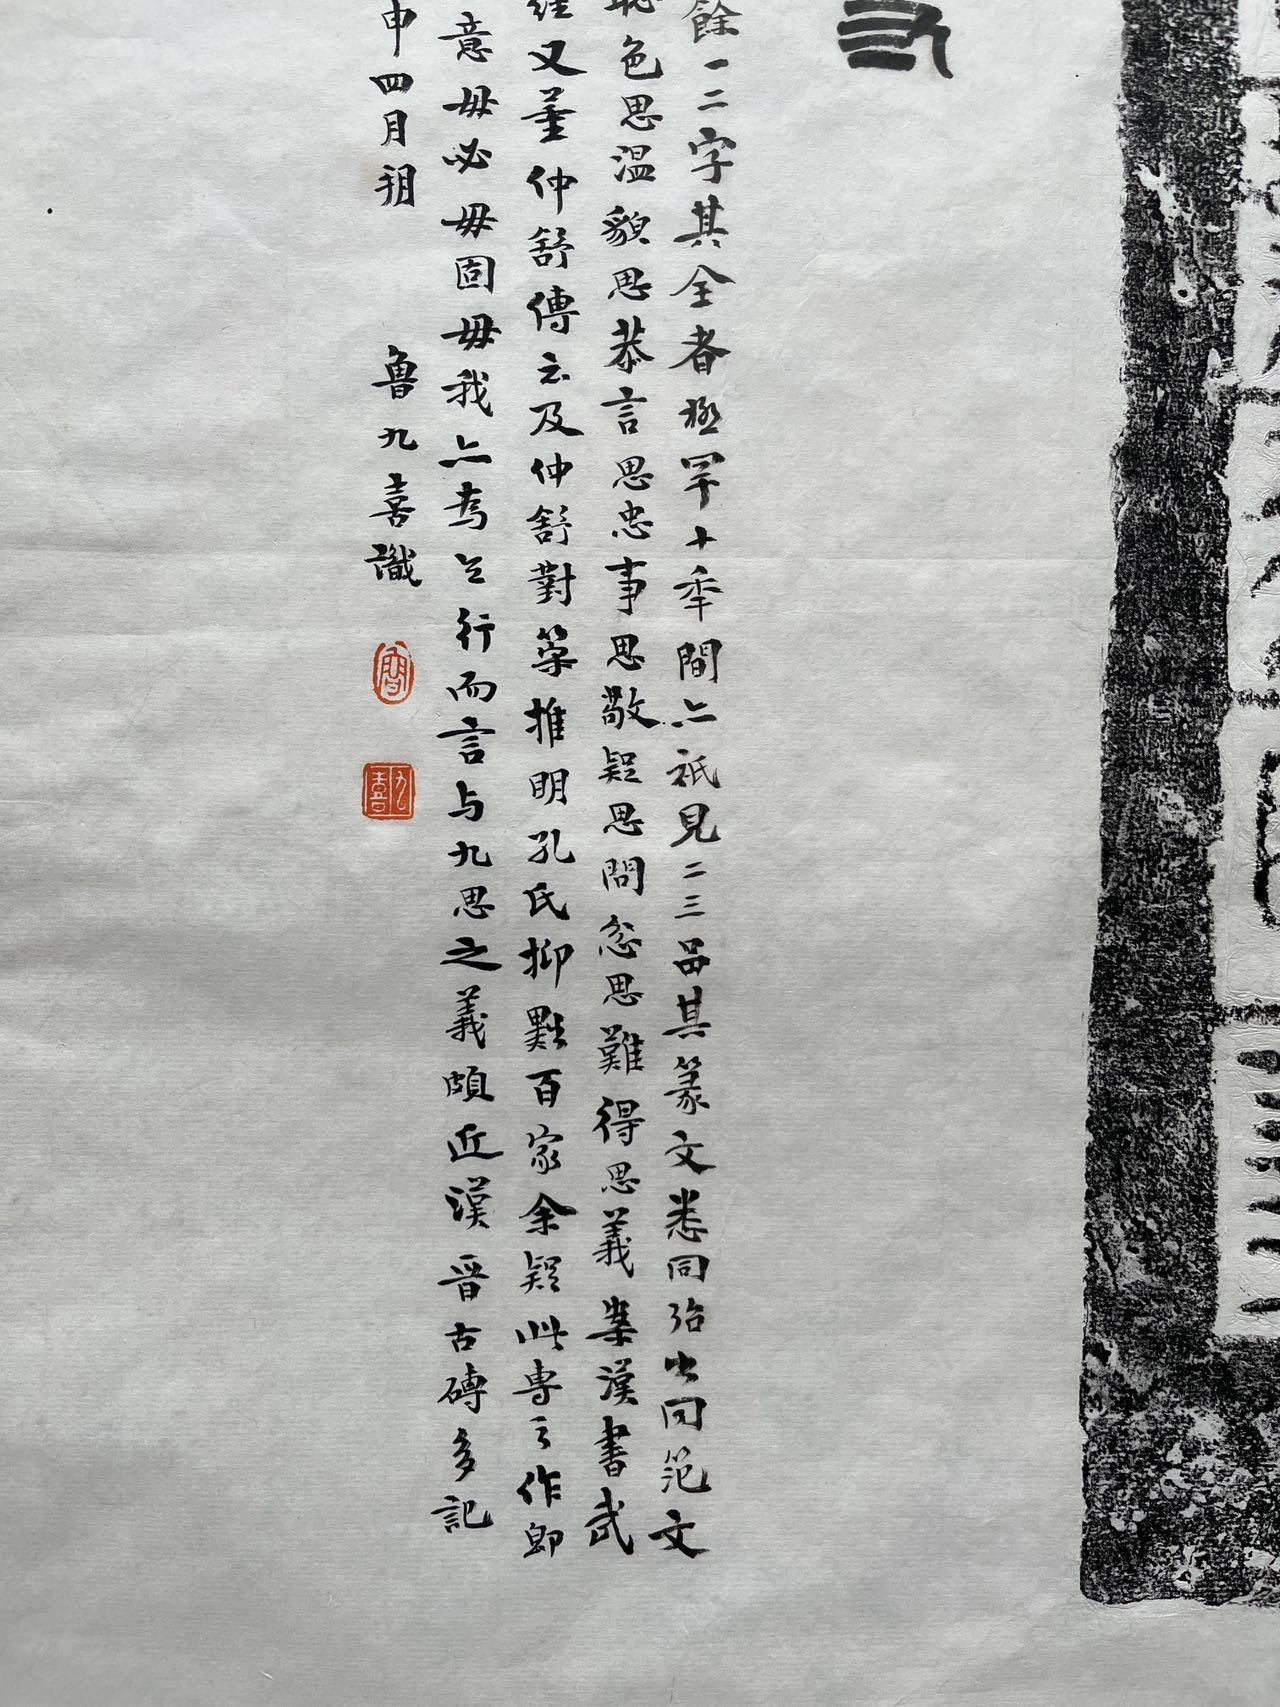 餘一二字其全者極罕十季間亦祇見二三品其篆文悉同殆出同范文
聡色思溫貌思恭言思忠事思敬疑思問忿思難得思義案漢書武
又董仲舒傳云及仲舒對策推明孔氏抑黜百家余疑此專之作即
意毋必毋固毋我亦為之行而言与九思之義頗近漢晉古磚多記
申四月朔 魯九喜識
魯
九喜